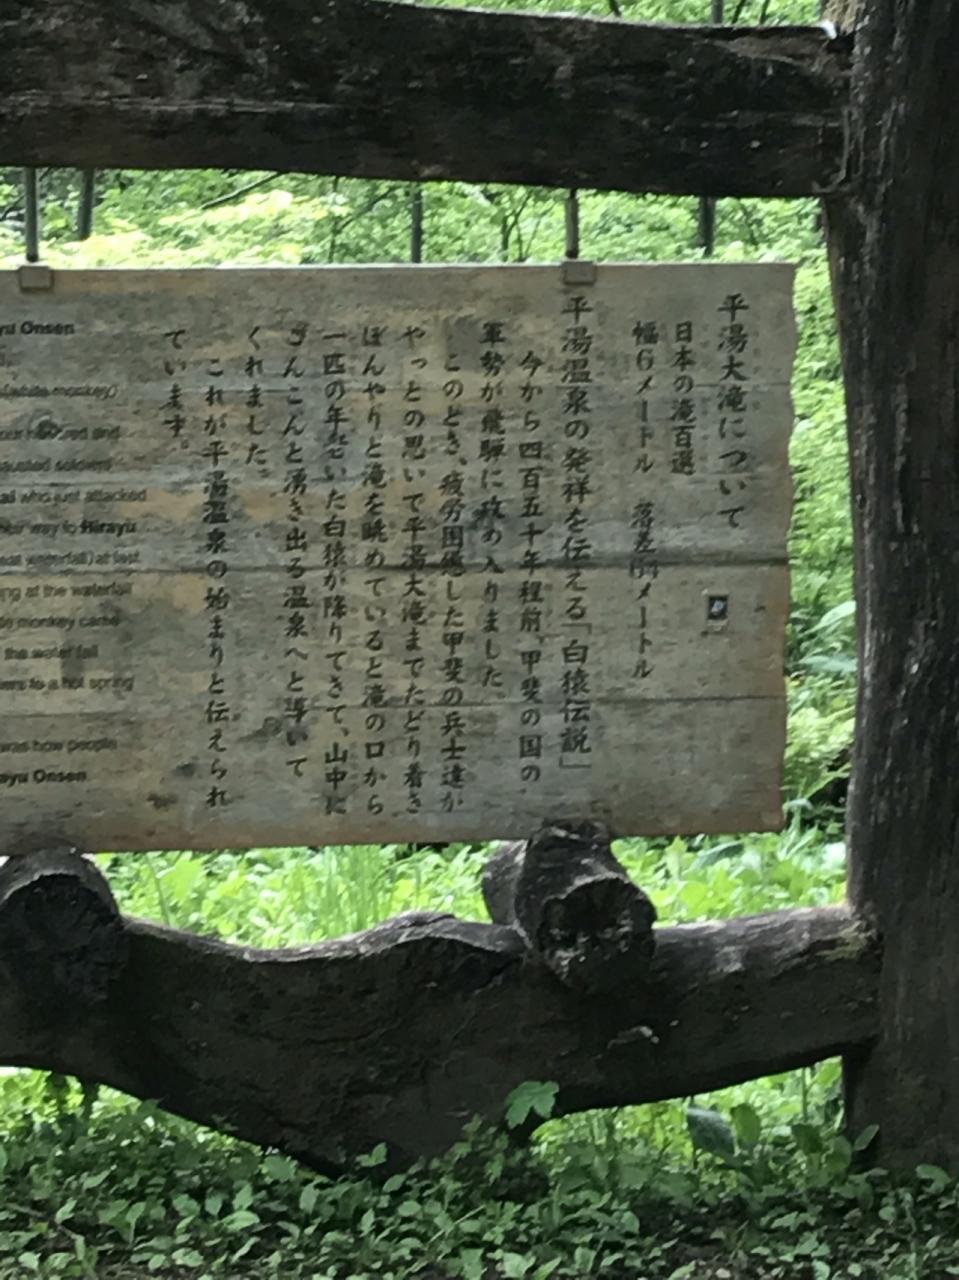 平湯大滝について
日本の滝百選
幅6メートル 落差64メートル
平湯温泉の発祥を伝える「白猿伝説」
今から四百五十年程前、甲斐の国の
軍勢が飛騨に攻め入りました。
このとき、疲労困憊した甲斐の兵士達が
やっとの思いで平湯大滝までたどり着き
ぼんやりと滝を眺めていると滝の口から
一匹の年老いた白猿が降りてきて、山中に
こんこんと湧き出る温泉へと導いて
くれました。
これが平湯温泉の始まりと伝えられ
ています。
yu Onsen
(white monkey)
and
soldiers
who just attacked
way to Hirayu
at last
ng at the waterfall
monkey came
the water fall
to a hot spring
was how people
ayu Onsen